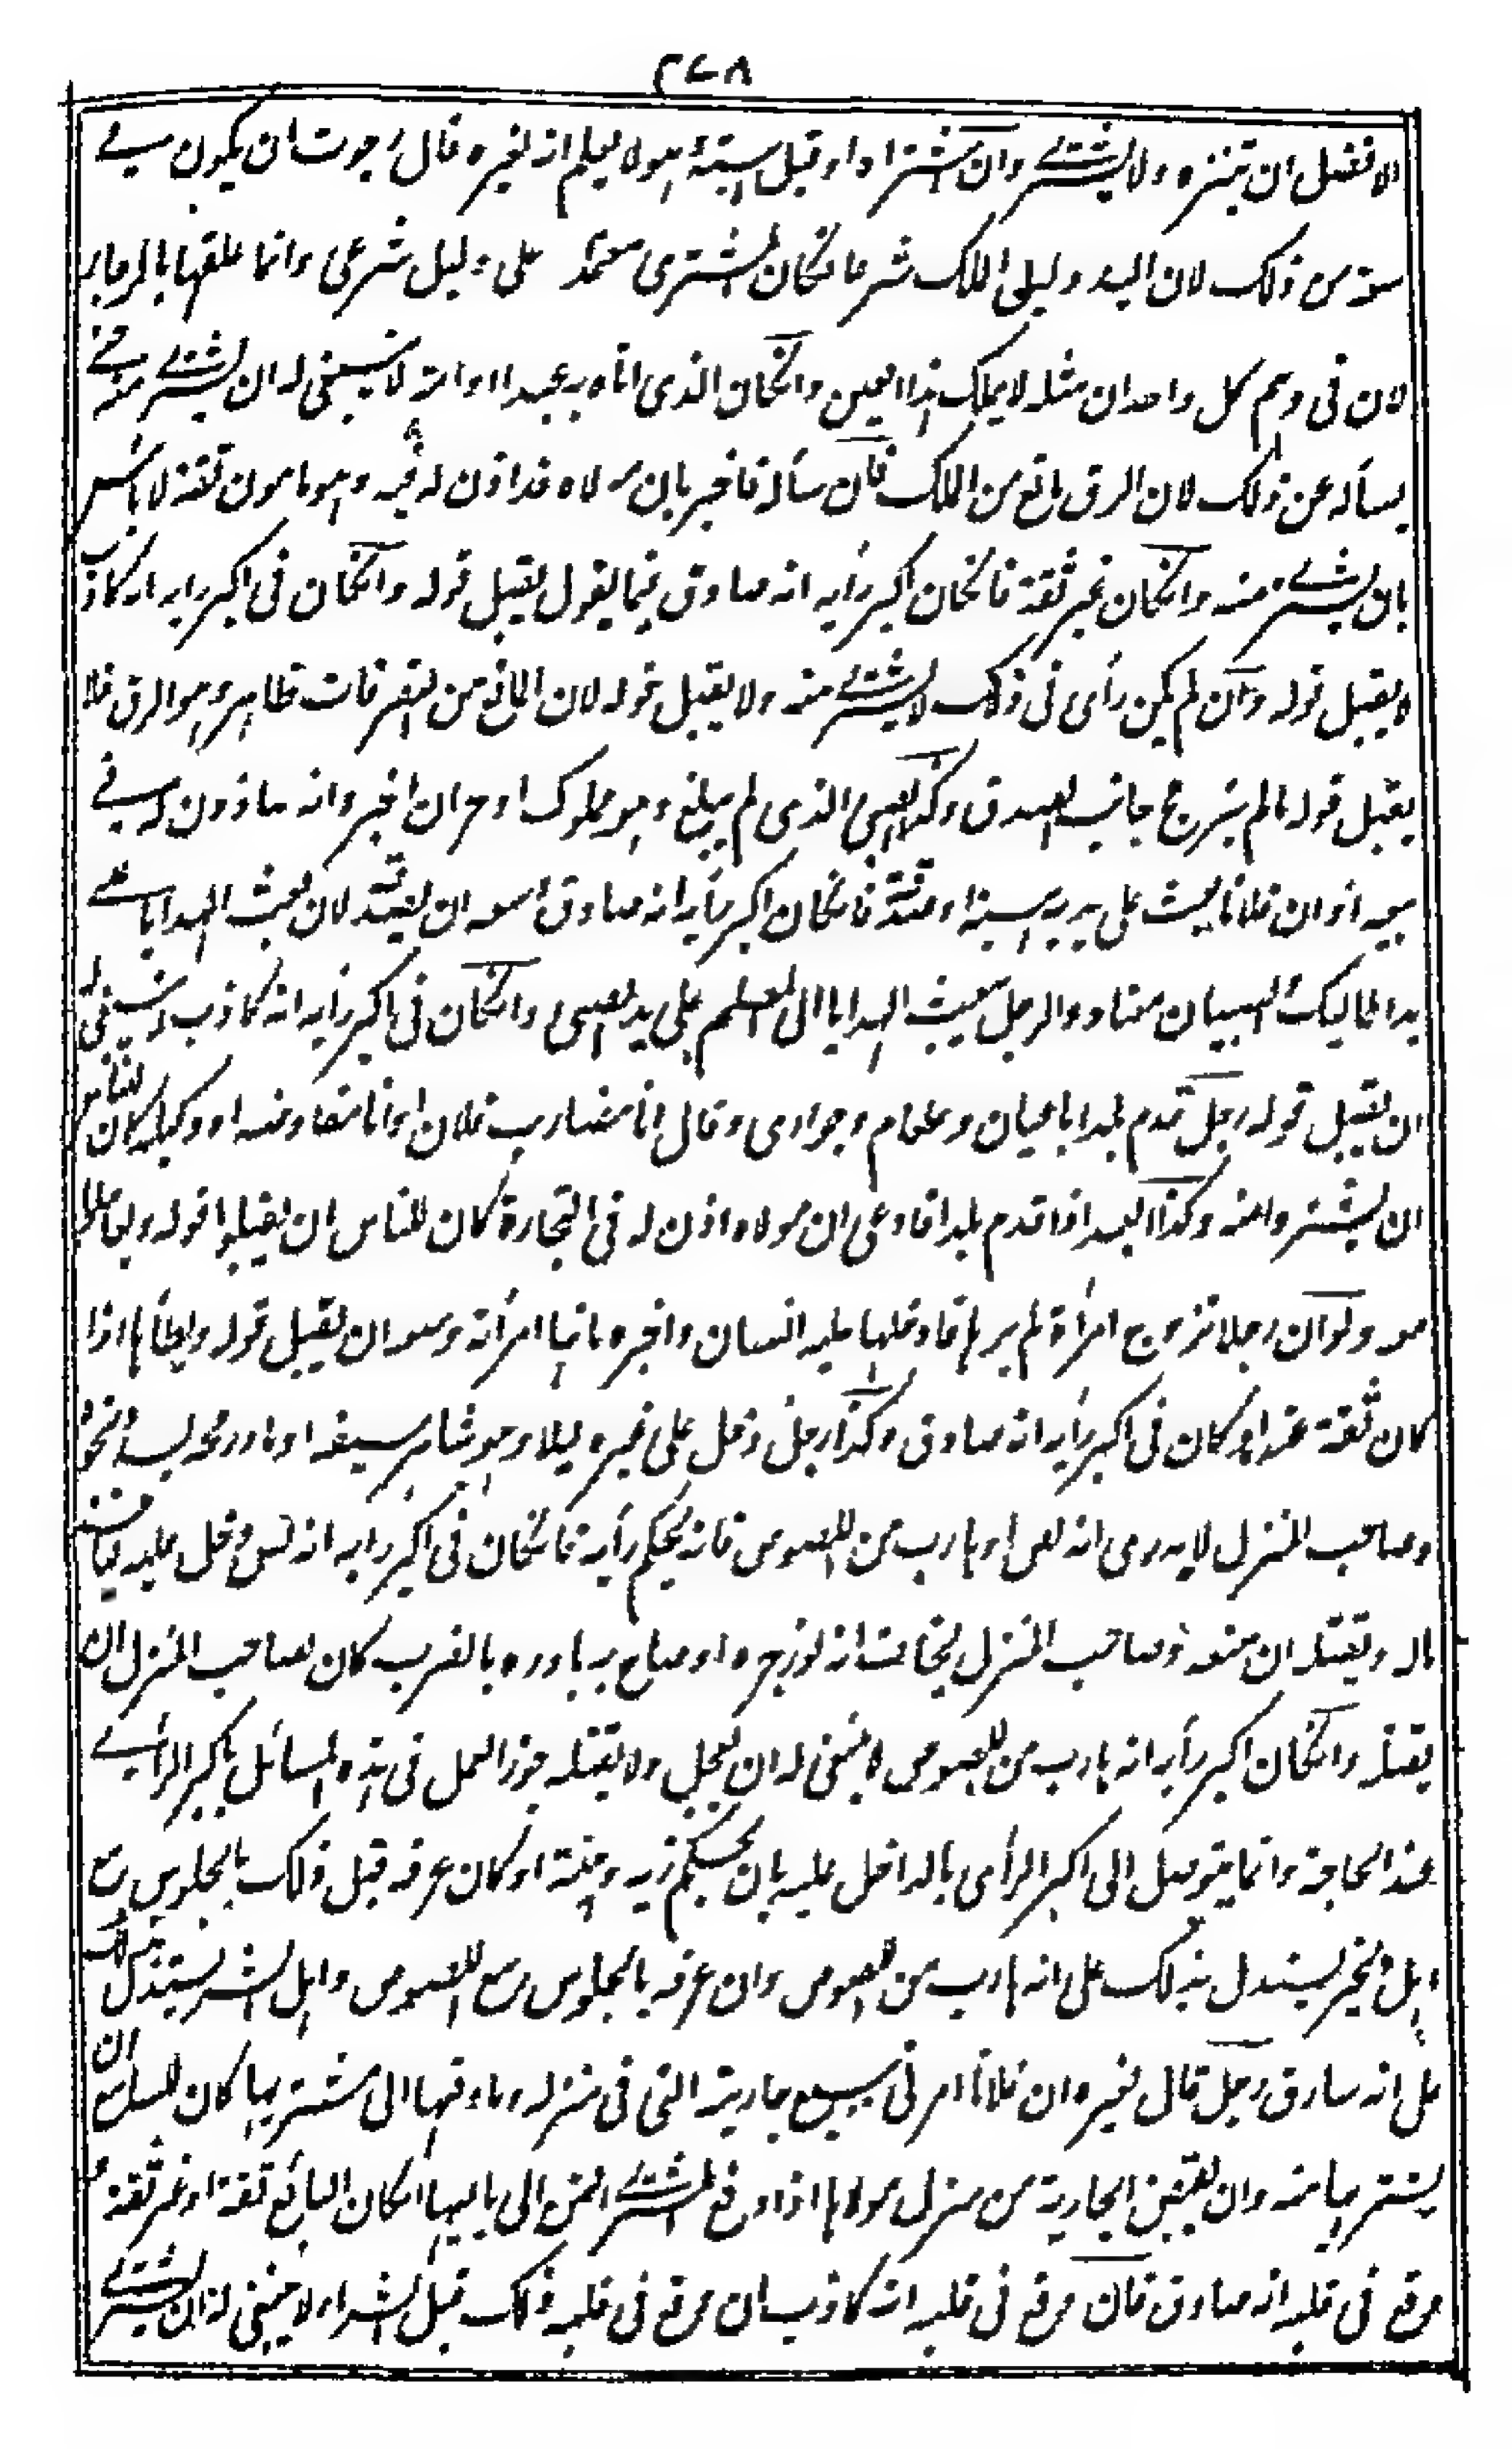 ٢٧٨
الافضل ان يتنزه ولا يشترى وان اشتراه او قبل هبته وهو لا يعلم انه لغيره قال رجوت ان يكون فى
سعة من ذلك لان اليد دليل الملك شرعا فكان المشترى معتمدا على دليل شرعى وانما علقها بالرجاء
لان فى وهم كل واحد ان مثله لا يملك هذا العين وانكان الذى اتاه به عبدا او امة لا ينبغى له ان يشترى منه حتى
يسأله عن ذلك لان الرق مانع من الملك فان سأله فاخبره بان مولاه قد اذن له فيه وهو مامون ثقة لا باس
بان يشترى منه وانكان غير ثقة فانكان اكبر رأيه انه صادق فيما يقول يقبل قوله وانكان فى اكبر رايه انه كاذب
لا يقبل قوله وان لم يكن رأى فى ذلك لا يشترى منه ولا يقبل قوله لان المانع من التصرفات ظاهر وهو الرق فلا
يقبل قوله مالم يترجح جانب الصدق وكذا الصبى الذى لم يبلغ وهو مملوك او حر ان اخبره انه ماذون له فى
بيعه او ان فلانا بعث على يديه هبة او صدقة فانكان اكبر رأيه انه صادق وسعه ان يصدقه لان بعث الهدايا على
يد المماليك والصبيان معتاد والرجل يبعث الهدايا الى المعلم على يد الصبى وانكان فى اكبر رأيه انه كاذب لا ينبغى له
ان يقبل قوله رجل قدم بلدا باعيان وطعام وجوارى وقال انا مضارب فلان او انا مفاوضه او وكيله كان للناس
ان يشتروا منه وكذا العبد اذا قدم بلدا فادعى ان مولاه اذن له فى التجارة كان للناس ان يقبلوا قوله ويعاملوا
معه ولو ان رجلا تزوج امرأة لم يرها فادخلها عليه انسان واخبره بانها امرأته وسعه ان يقبل قوله ويطأها اذا
كان ثقة عنده او كان فى اكبر رأيه انه صادق وكذا رجل دخل على غيره ليلا وهو شاهر سيفه او مادّ رمحه يشتد نحوه
وصاحب المنزل لا يدرى انه لص او هارب من اللصوص فانه يحكم رأيه فانكان فى اكبر رايه انه لص دخل عليه لياخذ
ماله ويقتله ان منعه وصاحب المنزل يخاف انه لو زجره او صاح به بادره بالضرب كان لصاحب المنزل ان
يقتله وانكان اكبر رأيه انه هارب من اللصوص لا ينبغى له ان يعجل ولا يقتله جوز العمل فى هذه المسائل باكبر الرأى
عند الحاجة وانما يتوصل الى اكبر الرأى بالداخل عليه بان يحكم زيه وهيئته او كان عرفه قبل ذلك بالجلوس مع
اهل الخير يستدل بذلك على انه هارب من اللصوص وان عرفه بالجلوس مع اللصوص واهل الشر يستدل بذلك
على انه سارق رجل قال لغيره ان فلانا امرنى ببيع جاريته التى فى منزله ودفعها الى مشتريها كان للسامع ان
يشتريها منه وان يقبض الجارية من منزل مولاها اذا دفع المشترى الثمن الى بايعها كان البائع ثقة او غير ثقة و
وقع فى قلبه انه صادق فان وقع فى قلبه انه كاذب ان وقع فى قلبه ذلك قبل الشراء لا ينبغى له ان يشترى